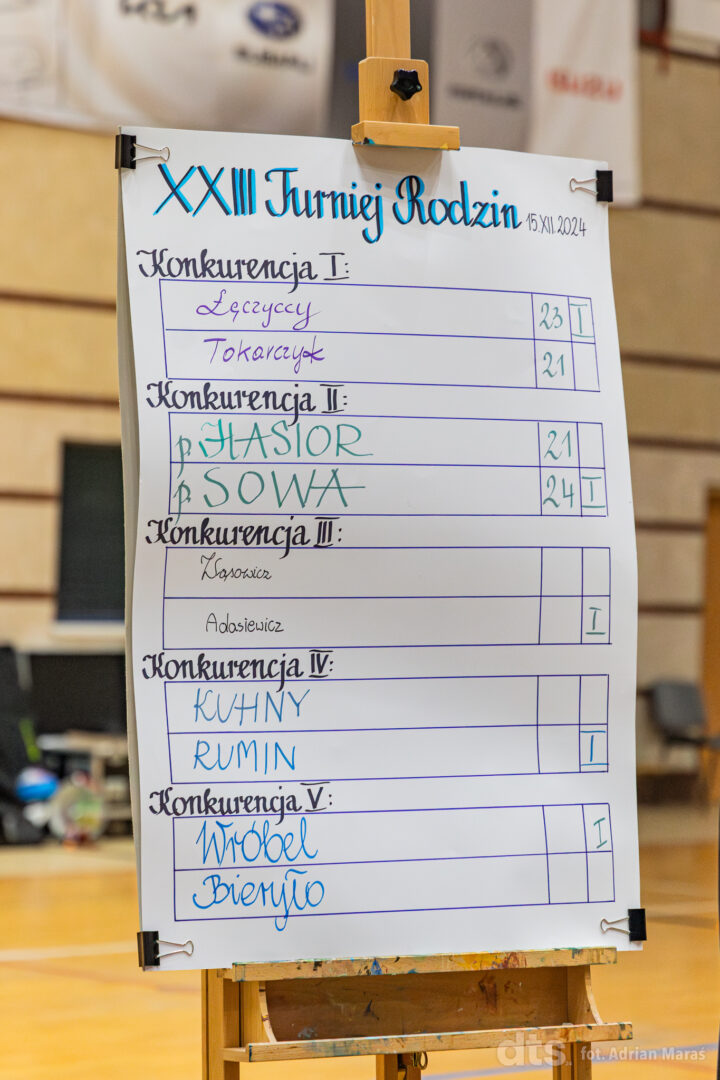 KIA
SUBARU
ISUZU
XXIII Turniej Rodzin 15.XII.2024
Konkurencja I:
Łęczyccy 23 I
Tokarczyk 21
Konkurencja II:
p. HASIOR 21
p. SOWA 24 I
Konkurencja III:
Wąsowicz
Adasiewicz I
Konkurencja IV:
KUHNY
RUMIN I
Konkurencja V:
Wróbel I
Bieryło
dts fot. Adrian Maraś